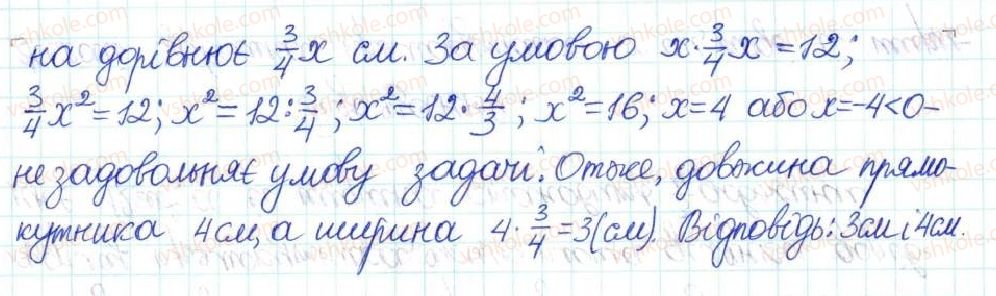 на дорівнює 3/4 x см. За умовою x · 3/4 x = 12;
3/4 x² = 12; x² = 12 : 3/4; x² = 12 · 4/3; x² = 16; x = 4 або x = -4 < 0 –
не задовольняє умову задачі. Отже, довжина прямо-
кутника 4 см, а ширина 4 · 3/4 = 3 (см). Відповідь: 3 см і 4 см.